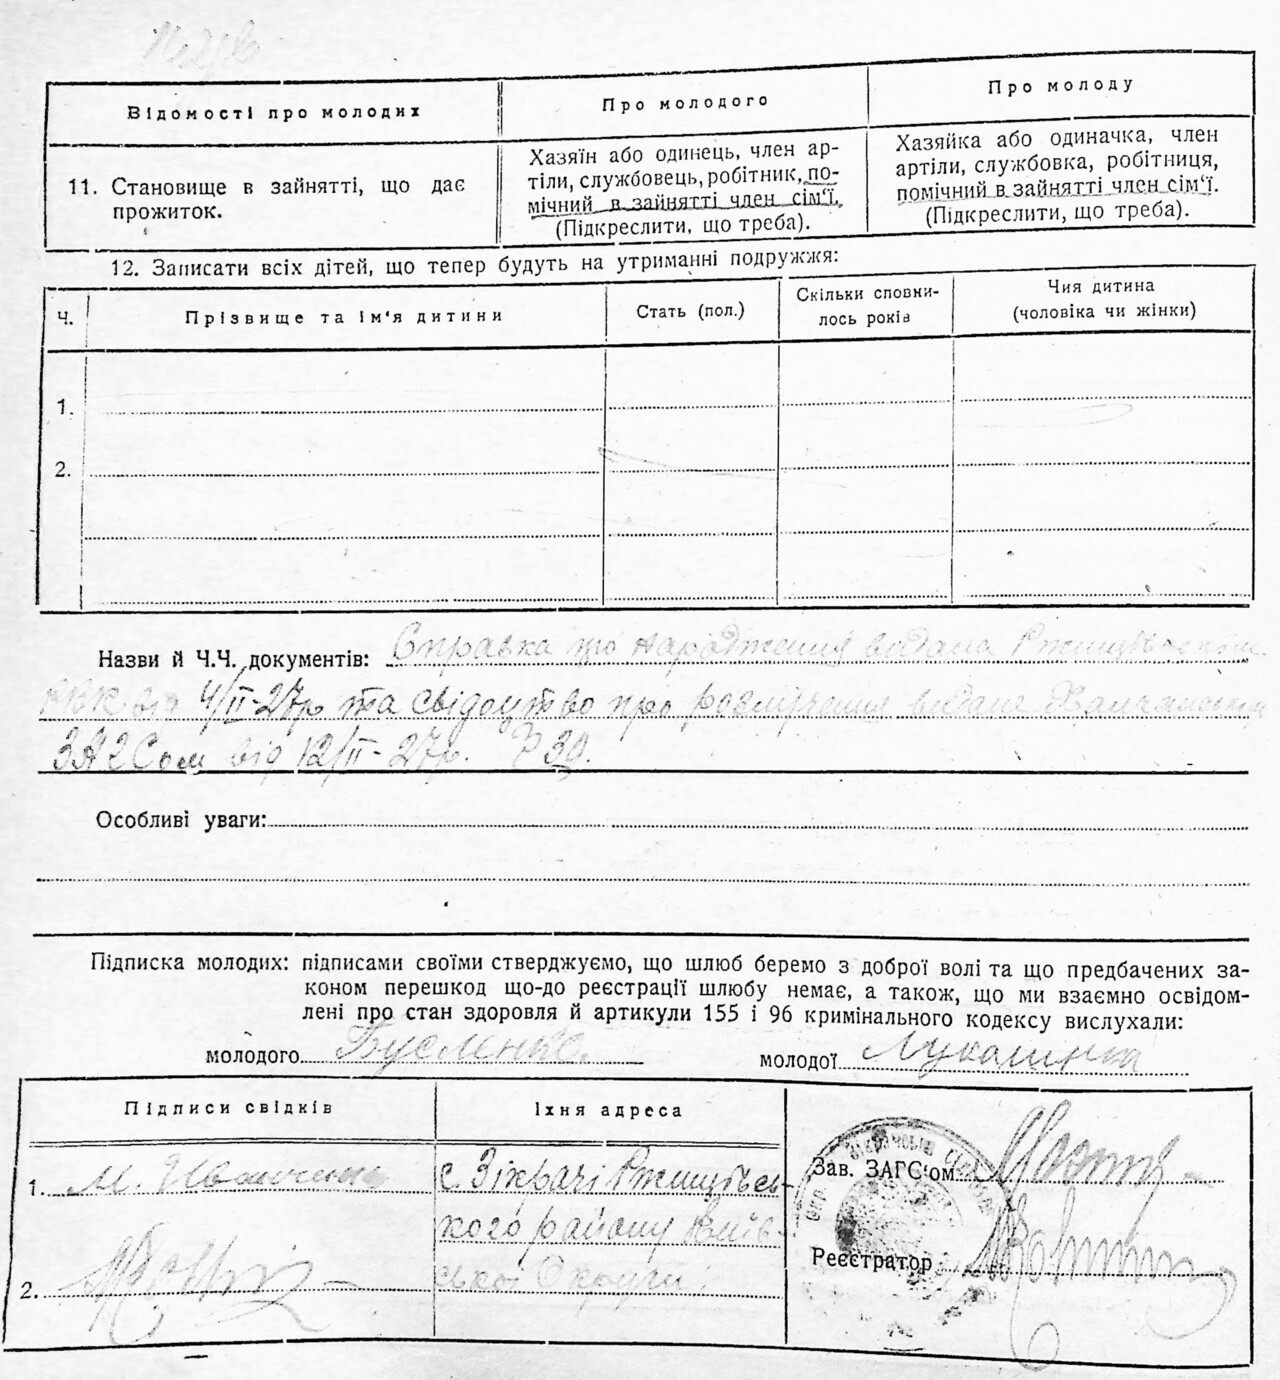 Відомості про молодих
Про молодого
Про молоду
11. Становище в зайнятті, що дає
прожиток.
Хазяїн або одинець, член ар-
тіли, службовець, робітник, по-
мічний в зайнятті член сім'ї.
(Підкреслити, що треба).
Хазяйка або одиначка, член
артіли, службовка, робітниця,
помічний в зайнятті член сім'ї.
(Підкреслити, що треба).
12. Записати всіх дітей, що тепер будуть на утриманні подружжя:
Ч.
Прізвище та ім'я дитини
Стать (пол.)
Скільки сповни-
лось років
Чия дитина
(чоловіка чи жінки)
1.
2.
Назви й Ч.Ч. документів: Справка про народження видана Ржищівським
РВК від 4/II-27р та свідоцтво про розлучення видане
ЗАГСом від 12/II-27р. № 30.
Особливі уваги:
Підписка молодих: підписами своїми стверджуємо, що шлюб беремо з доброї волі та що предбачених за-
коном перешкод що-до реєстрації шлюбу немає, а також, що ми взаємно освідом-
лені про стан здоровля й артикули 155 і 96 кримінального кодексу вислухали:
молодого Бусленко. молодої
Підписи свідків
Їхня адреса
1. М.
с. Зікрачі Ржищівсь-
кого району Київ-
ської Округи.
2.
Зав. ЗАГС'ом
Реєстратор